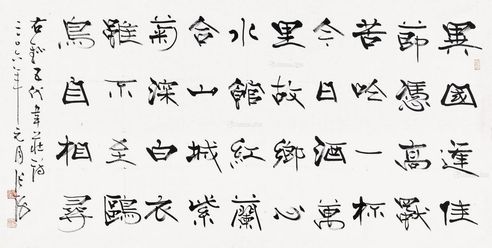 異國逢佳
節憑高獨
苦吟一杯
今日酒萬
里故鄉心
水館紅蘭
合山城紫
菊深白衣
雖不至鷗
鳥自相尋
右錄五代韋莊詩
二〇〇六年元月